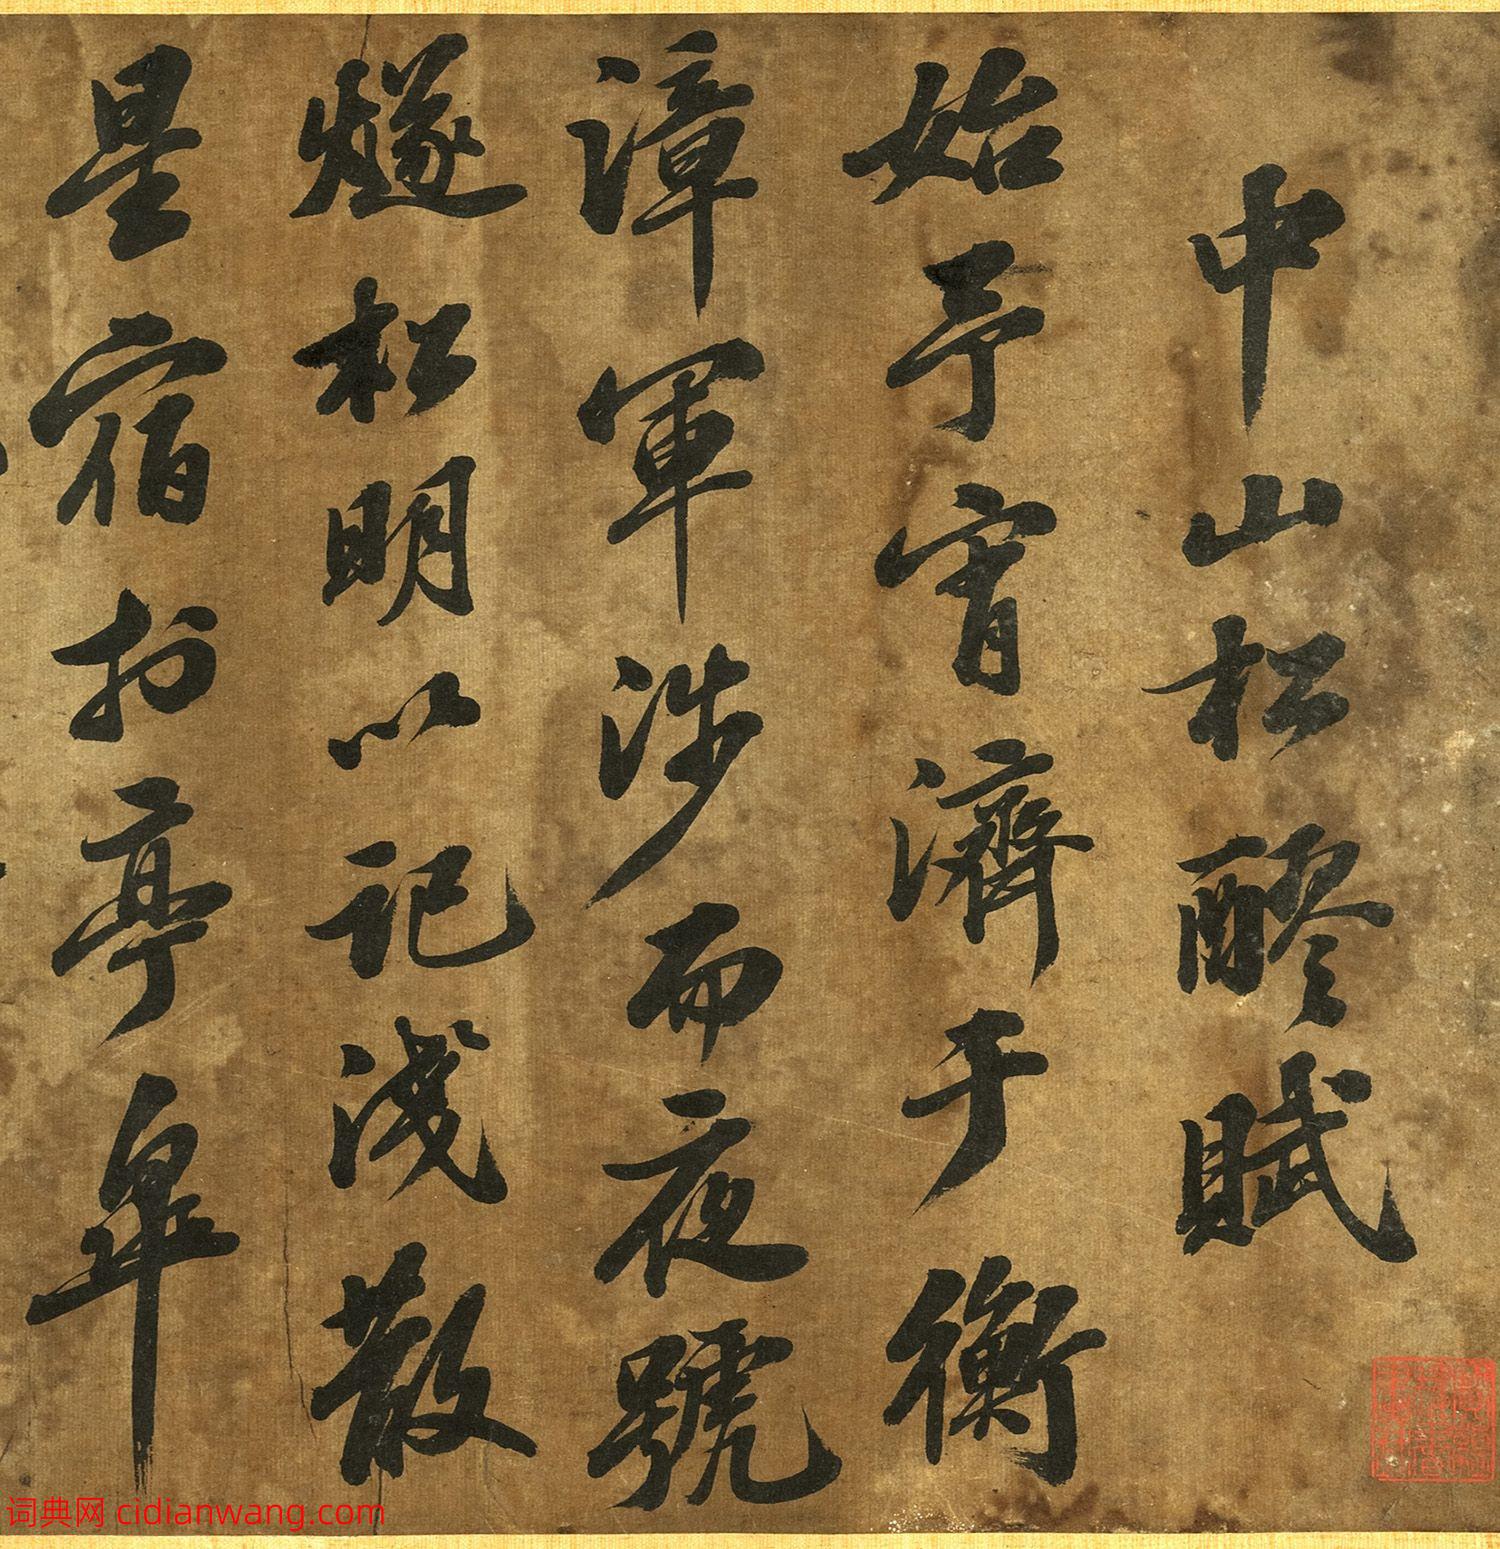 中山松醪賦
始予宵濟于衡
漳軍涉而夜號
燧松明以記淺散
星宿於亭皐
词典网 cidianwang.com